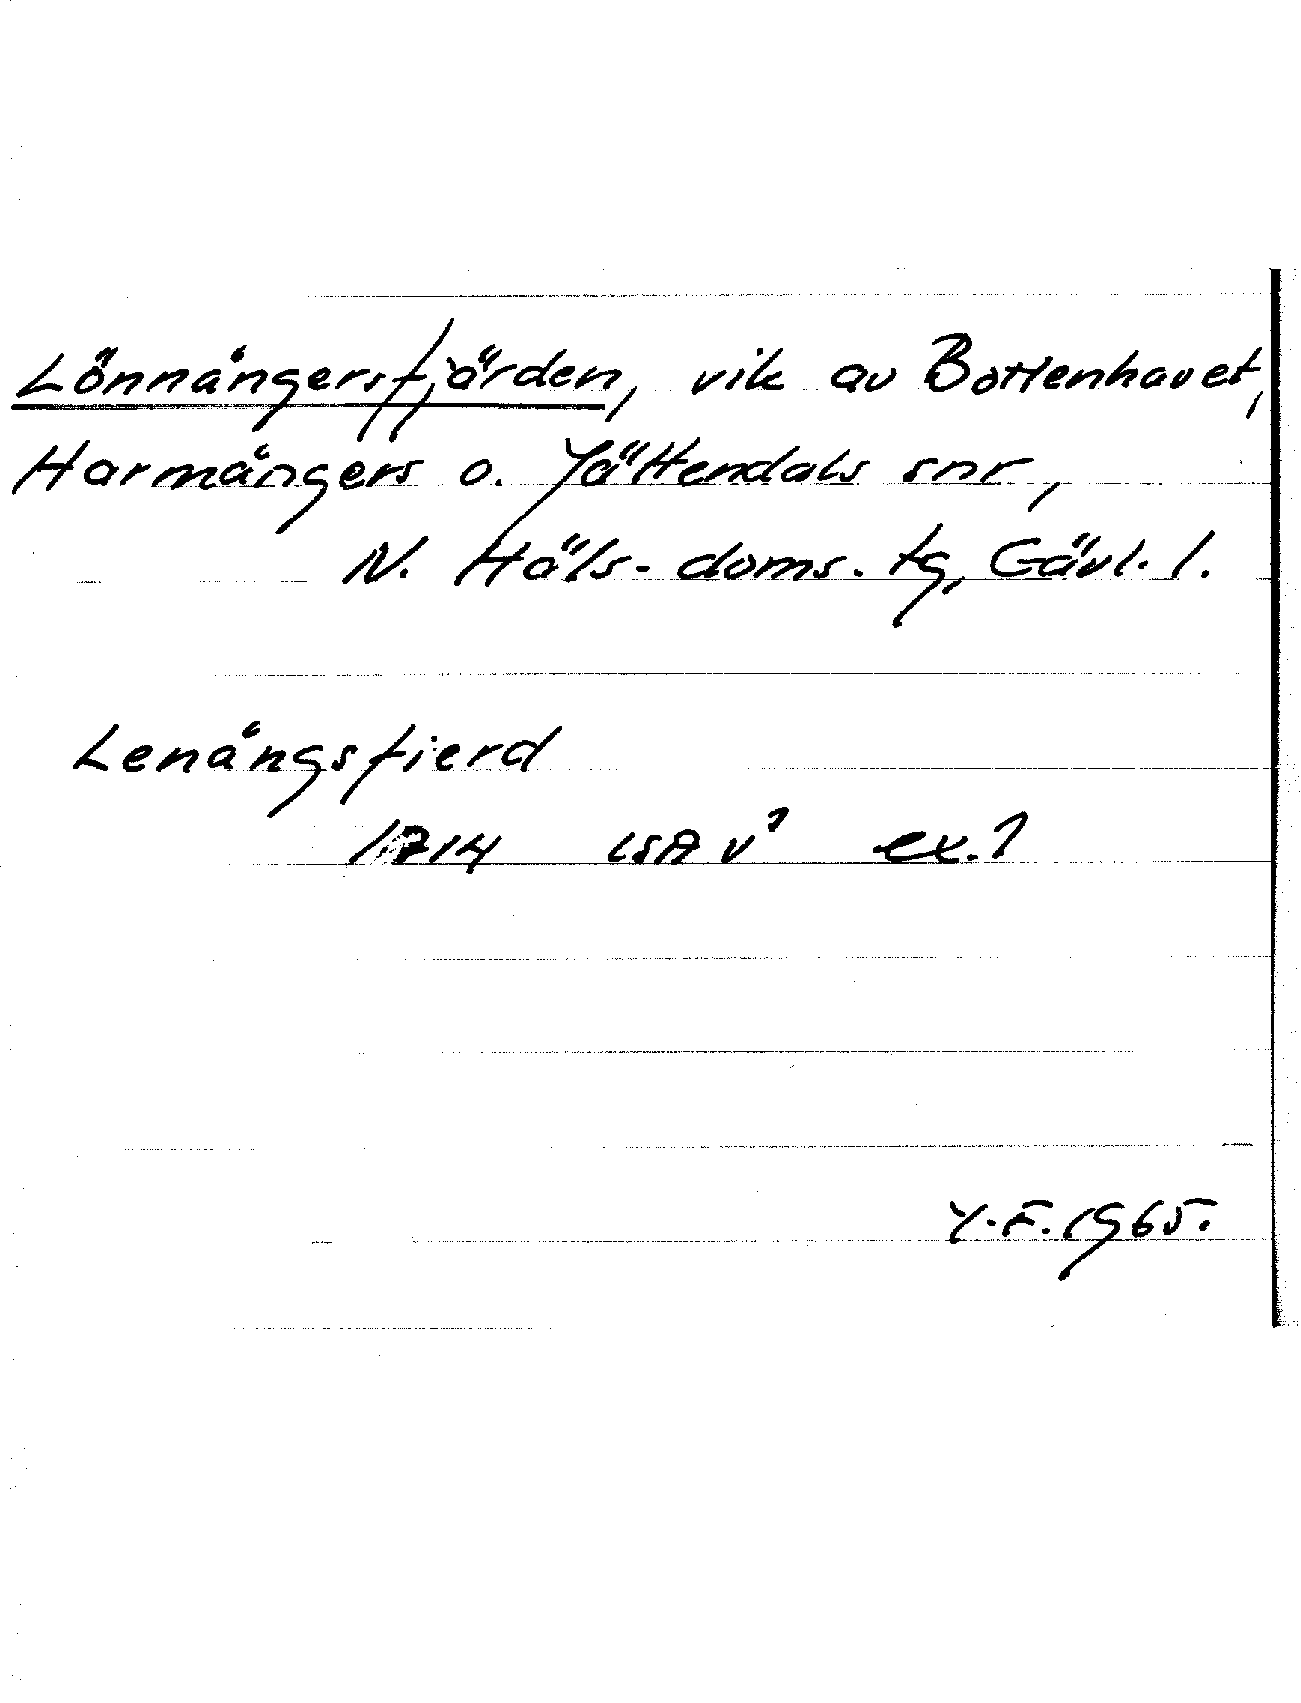 Lönnångersfjärden, vik av Bottenhavet,
Harmångers o. Jättendals snr,
N. Häls. doms. tg, Gävl. l.
Lenångsfierd
1714 LSA v¹ ex. 1
Y. F. 1965.